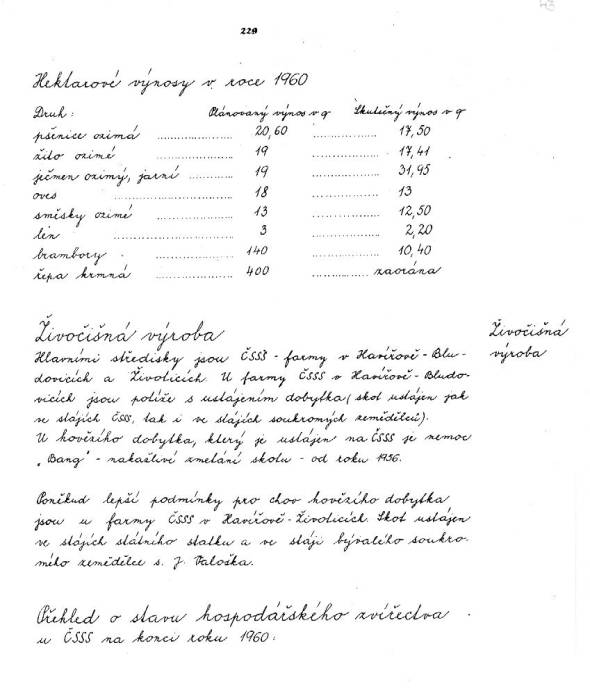 43
229
Hektarové výnosy v roce 1960
Druh: Plánovaný výnos v q Skutečný výnos v q
pšenice ozimá .................... 20,60 .................... 17,50
žito ozimé .................... 19 .................... 17,41
ječmen ozimý, jarní ............ 19 .................... 31,95
oves .................... 18 .................... 13
směsky ozimé .................... 13 .................... 12,50
len .................... 3 .................... 2,20
brambory .................... 140 .................... 10,40
řepa krmná .................... 400 .................... zaorána
Živočišná výroba Živočišná
výroba
Hlavními středisky jsou ČSSS - farmy v Havířově - Blu-
dovicích a Životicích. U farmy ČSSS v Havířově - Bludo-
vicích jsou potíže s ustájením dobytka (skot ustájen jak
ve stájích ČSSS, tak i ve stájích soukromých zemědělců).
U hovězího dobytka, který je ustájen na ČSSS je nemoc
„Bang" - nakažlivé zmetání skotu - od roku 1956.
Poněkud lepší podmínky pro chov hovězího dobytka
jsou u farmy ČSSS v Havířově - Životicích. Skot ustájen
ve stájích státního statku a ve stáji bývalého soukro-
mého zemědělce s. J. Valoška.
Přehled o stavu hospodářského zvířectva
u ČSSS na konci roku 1960: